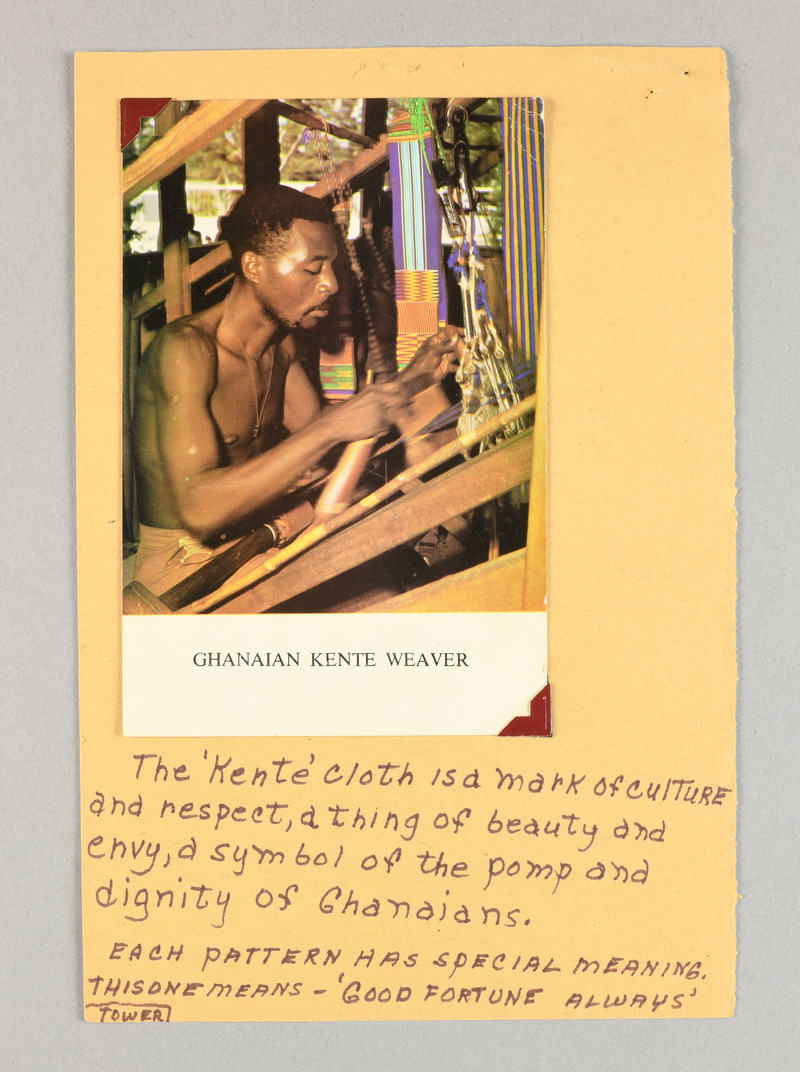 GHANAIAN KENTE WEAVER
The 'Kente' cloth is a mark of culTURE
and respect, a thing of beauty and
envy, a symbol of the pomp and
dignity of Ghanaians.
EACH PATTERN HAS SPECIAL MEANING.
THIS ONE MEANS - 'GOOD FORTUNE ALWAYS'
TOWER